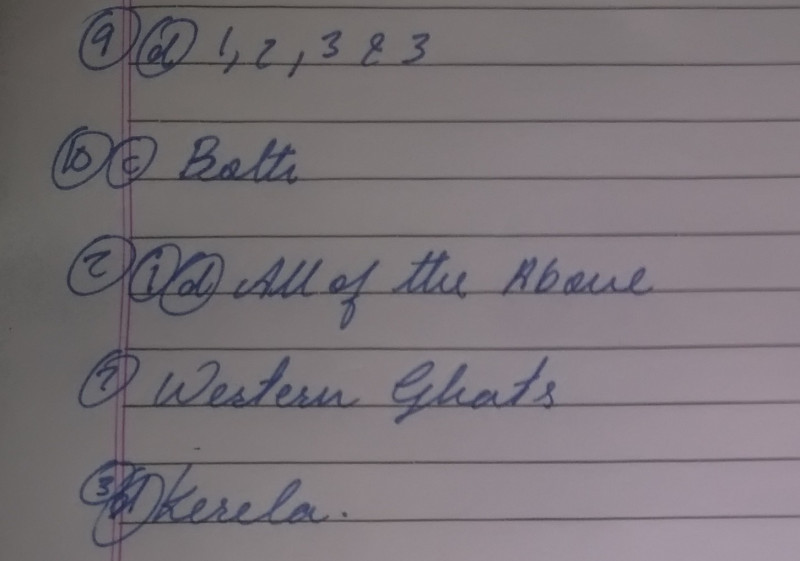 9 d 1, 2, 3 & 3
10 c Both
2 i d All of the Above
? Western Ghats
3 d Kerela.